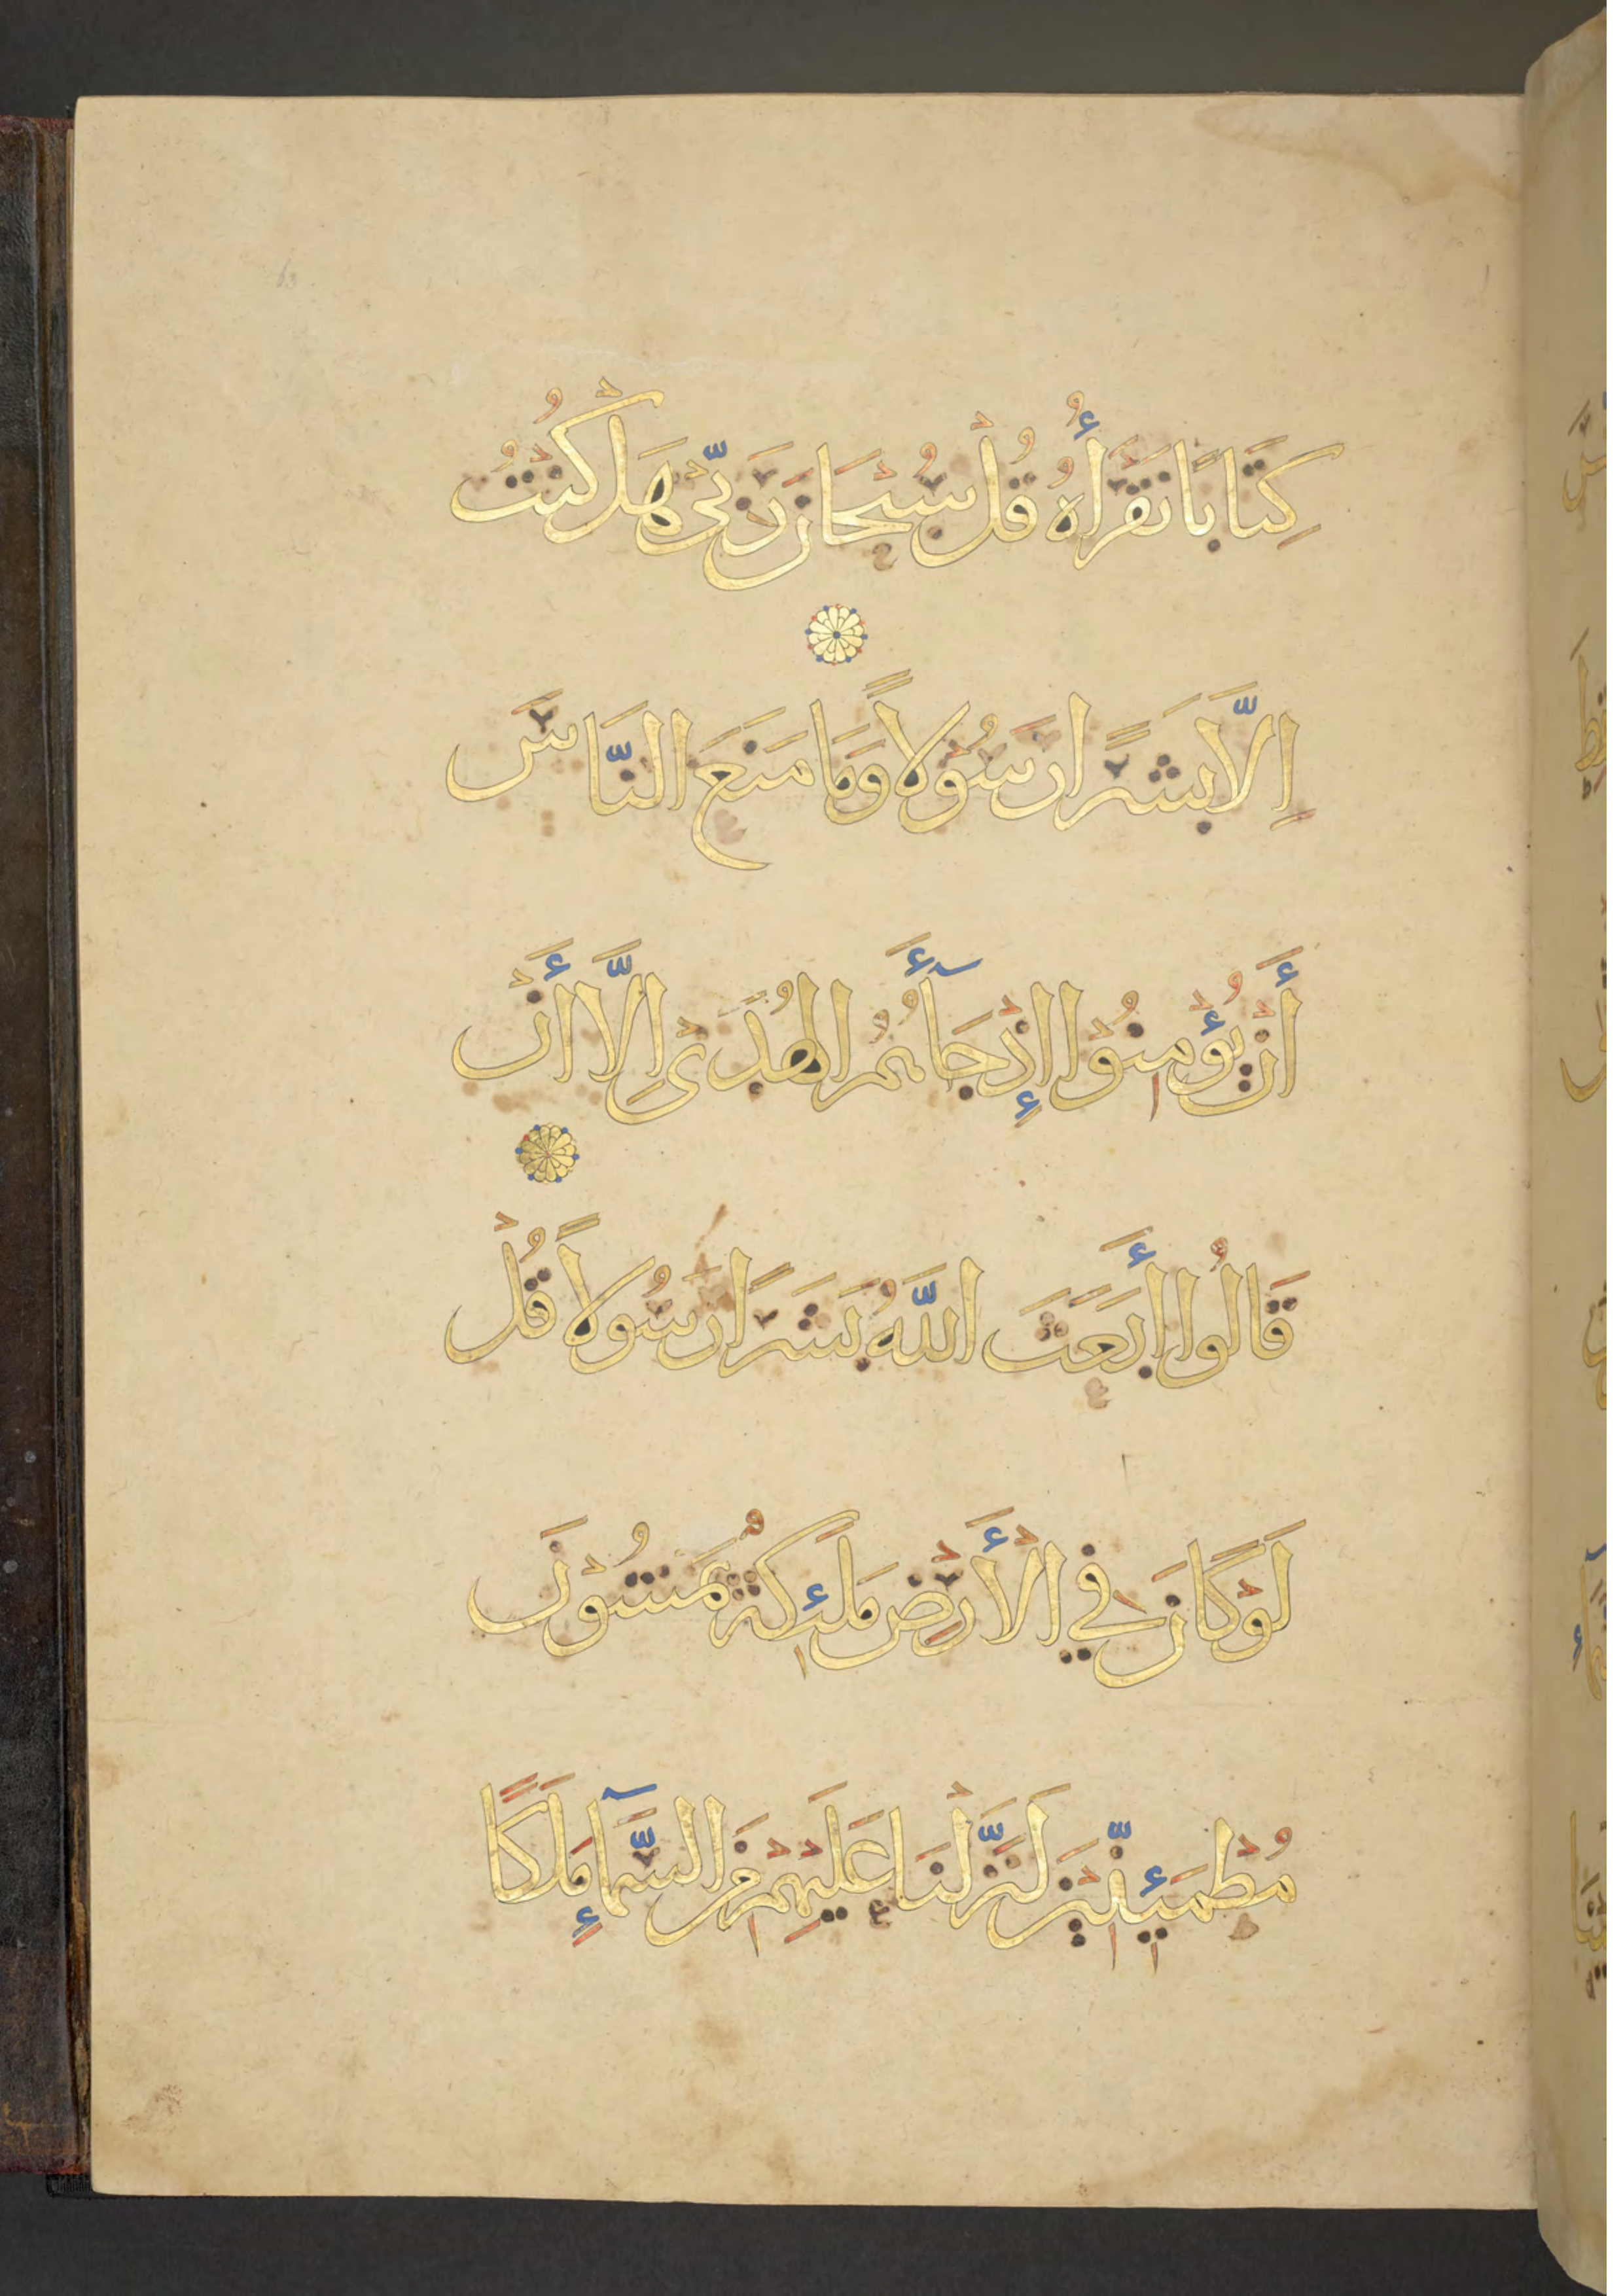 كِتَابًا نَقْرَأُهُ قُلْ سُبْحَانَ رَبِّيْ هَلْ كُنْتُ
اِلَّا بَشَرًا رَسُوْلًا وَمَا مَنَعَ النَّاسَ
أَنْ يُؤْمِنُوْا إِذْ جَآءَهُمُ الْهُدَىْ اِلَّا أَنْ
قَالُوا أَبَعَثَ اللَّهُ بَشَرًا رَسُولًا قُلْ
لَوْ كَانَ فِي الْأَرْضِ مَلَئِكَةٌ يَمْشُوْنَ
مُطْمَئِنِّيْنَ لَنَزَّلْنَا عَلَيْهِمْ مِنَ السَّمَآءِ مَلَكًا